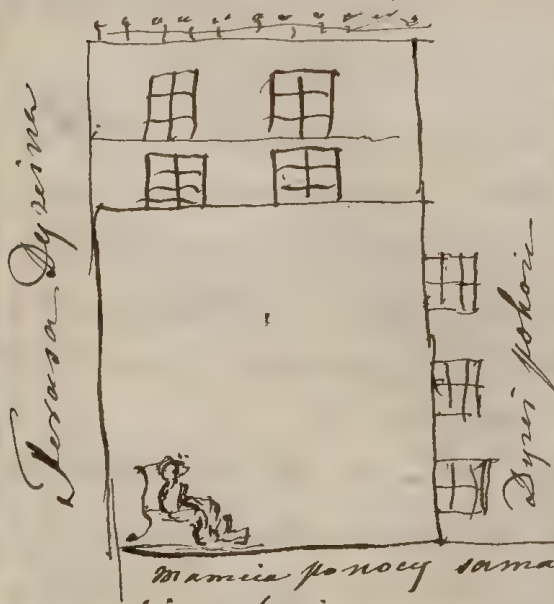 Terasa Dyzina
Dyzi pokoie
mamcia po nocy sama